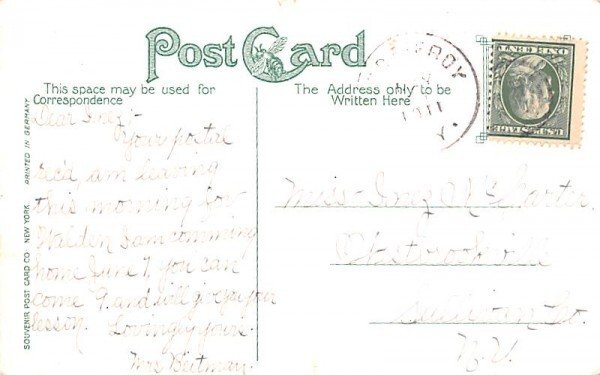 POST CARD
This space may be used for
Correspondence
The Address only to be
Written Here
PRINTED IN GERMANY
SOUVENIR POST CARD CO. NEW YORK.
Dear Inez:-
Your postal
rec'd, am leaving
this morning for
Walden I am comming
home June 7. you can
come 9. and will give you your
lesson. Lovingly yours.
Mrs Weitman.
1911
Miss Inez
Sullivan Co.
N.Y.